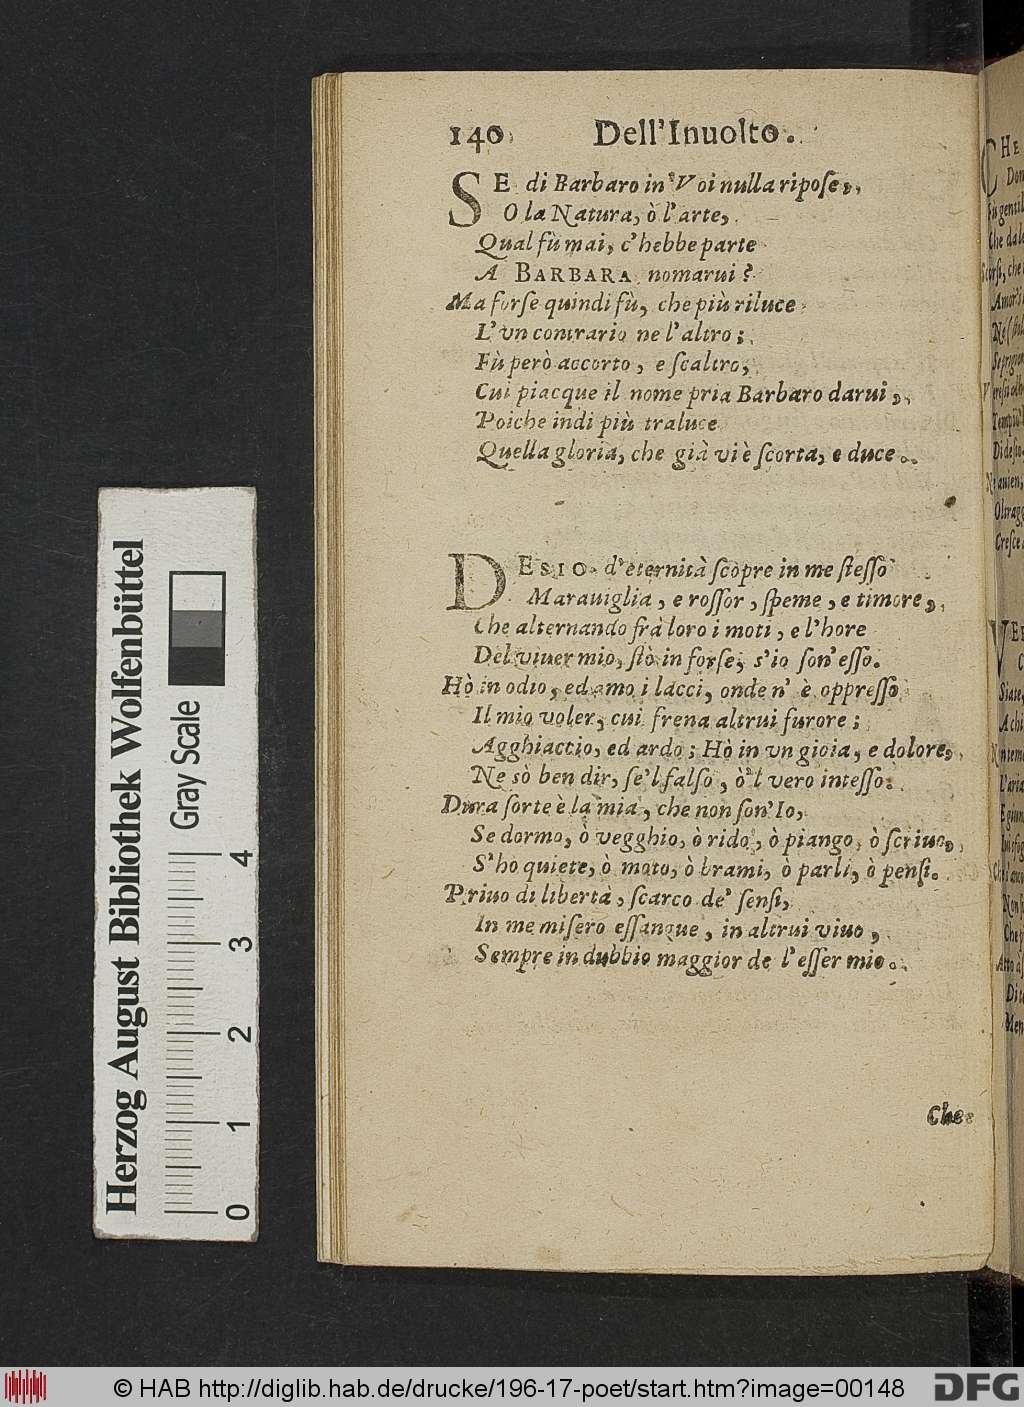 140 Dell'Inuolto.
SE di Barbaro in Voi nulla ripose,
O la Natura, ò l'arte,
Qual fù mai, c'hebbe parte
A BARBARA nomarui?
Ma forſe quindi fù, che più riluce
L'vn contrario ne l'altro;
Fù però accorto, e ſcaltro,
Cui piacque il nome pria Barbaro darui,
Poiche indi più traluce
Quella gloria, che già vi è ſcorta, e duce.
DESIO d'eternità ſcopre in me ſteſſo
Marauiglia, e roſſor, ſpeme, e timore,
Che alternando frà loro i moti, e l'hore
Del viuer mio, ſtò in forſe, s'io ſon' eſſo.
Hò in odio, ed amo i lacci, onde n' è oppreſſo
Il mio voler, cui frena altrui furore;
Agghiaccio, ed ardo; Hò in vn gioia, e dolore,
Ne sò ben dir, ſe'l falſo, ò'l vero inteſſo.
Dura ſorte è la mia, che non ſon' Io,
Se dormo, ò vegghio, ò rido, ò piango, ò ſcriuo,
S'ho quiete, ò moto, ò brami, ò parli, ò penſi.
Priuo di libertà, ſcarco de' ſenſi,
In me miſero eſſangue, in altrui viuo,
Sempre in dubbio maggior de l'eſſer mio.
Che
Herzog August Bibliothek Wolfenbüttel
Gray Scale
0 1 2 3 4
© HAB http://diglib.hab.de/drucke/196-17-poet/start.htm?image=00148
DFG